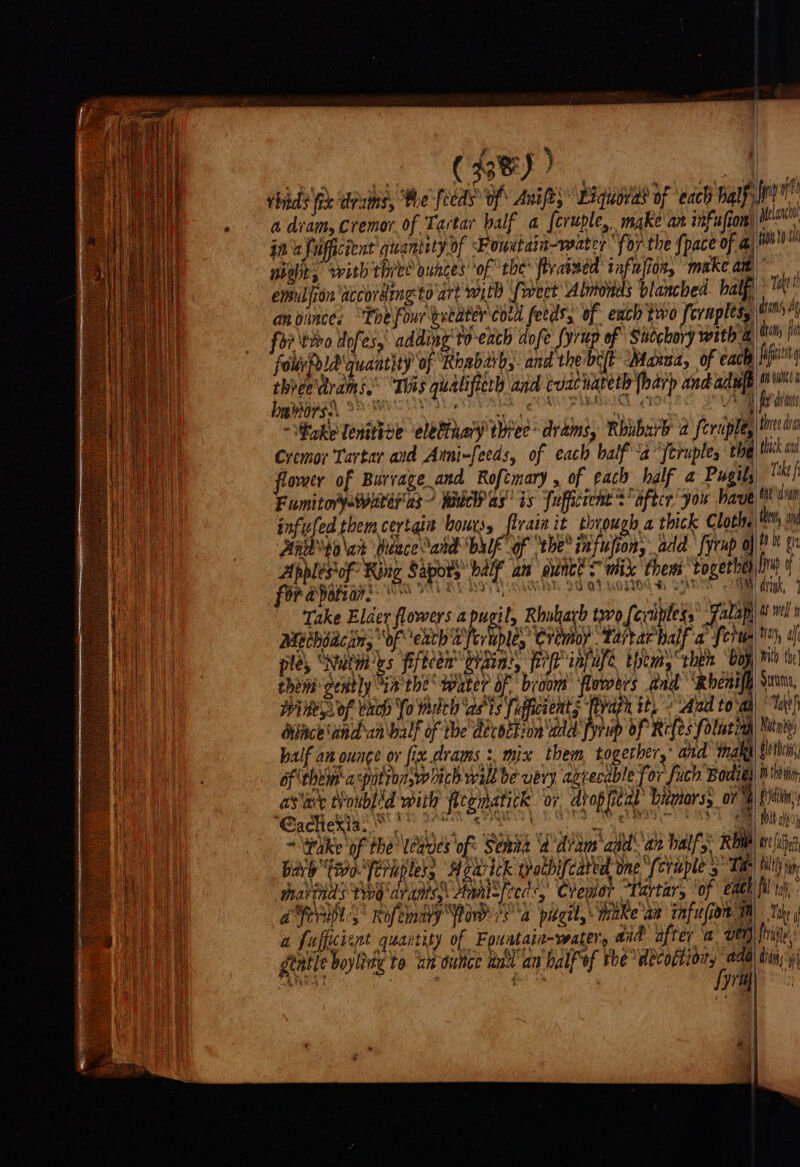 (338)
rinds six drams, the seeds of Anise, Liquoras of each half
a dram, Cremor of Tartar half a scruple, make an infusion
in a sufficient quantity of Fountain-water for the space of a
night, with three ounces of the strained infusion, make an
emulsion according to art with sweet Almonds blanched half
an ounce. The four greater cold seeds, of each two scruples,
for two doses, adding to each dose syrup of Succhory with a
fourfold quantity of Rhabarb, and the best Manna, of each
three drams. This qualifieth and evacuateth sharp and adust
humors.
Take lenitive electuary three drams, Rhubarb a scruple,
Cremor Tartar and Anni-seeds, of each half a scruple, the
flower of Burrage and Rosemary, of each half a Pugil,
Fumitory-Water as much as is sufficient: after you have
infused them certain hours, strain it through a thick Cloth,
And to an ounce and half of the infusion, add syrup of
Apples of King Sapors half an ounce: mix them together
for a potion.
Take Elder flowers a pugil, Rhubarb two scruples, Jalap,
Methoacan, of each a scruple, Cremor Tartar half a scru-
ple, Nutmegs fifteen grains, first infuse them, then boy
them gently in the water of broom flowers and Rhenish
Wine, of each so much as is sufficient, strain it, And to an
ounce and an half of the decoction add syrup of Roses solutive
half an ounce or six drams: mix them together, and make
of them a potion, which will be very agreeable for such Bodies
as are troubled with flegmatick or dropsical humors, or a
Cachexia.
Take of the leaves of Senna a dram and an half, Rhu-
barb two scruples, Agarick trochiscated one scruple, Ta-
marinds two drams, Anni-seeds, Cremor Tartar, of each
a scruple, Rosemary flowers a pugil, make an infusion in
a sufficient quantity of Fountain-water, and after a very
gentle boyling to an ounce and an half of the decoction, add
syrup